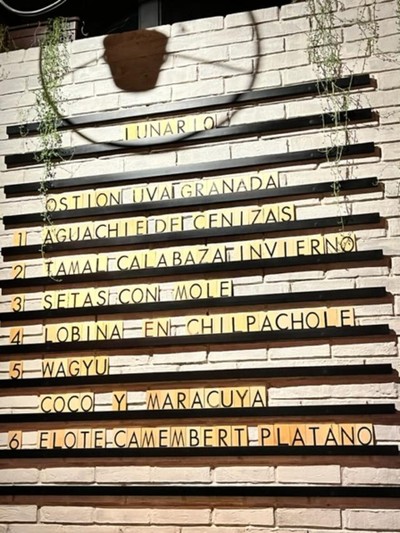 LUNARIO
OSTION UVA GRANADA
1 AGUACHILE DE CENIZAS
2 TAMAL CALABAZA INVIERNO
3 SETAS CON MOLE
4 LOBINA EN CHILPACHOLE
5 WAGYU
COCO Y MARACUYA
6 ELOTE-CAMEMBERT-PLATANO